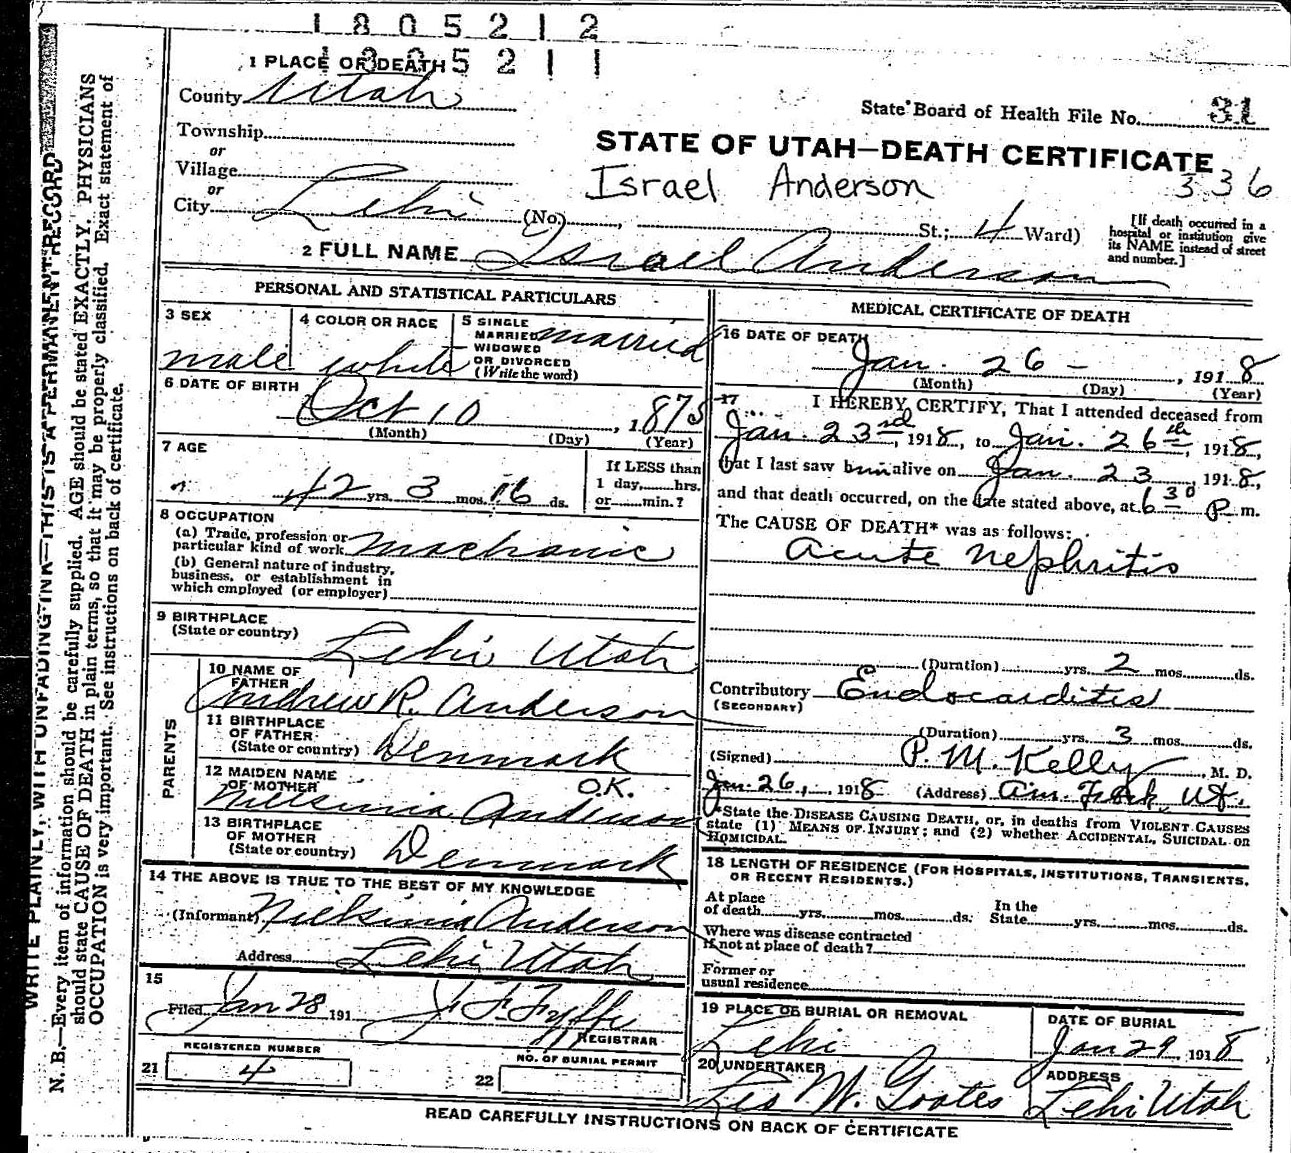 1 8 0 5 2 1 2
1 8 0 5 2 1 1
1 PLACE OF DEATH
County Utah
State Board of Health File No. 31
Township
or
Village
or
City Lehi (No. , St.; 4 Ward)
STATE OF UTAH—DEATH CERTIFICATE
Israel Anderson 336
[If death occurred in a hospital or institution give its NAME instead of street and number.]
2 FULL NAME Israel Anderson
PERSONAL AND STATISTICAL PARTICULARS
3 SEX
male
4 COLOR OR RACE
white
5 SINGLE
MARRIED
WIDOWED
OR DIVORCED
(Write the word)
married
6 DATE OF BIRTH
Oct 10, 1875
(Month) (Day) (Year)
7 AGE
42 yrs. 3 mos. 16 ds.
If LESS than
1 day, hrs.
or min.?
8 OCCUPATION
(a) Trade, profession or
particular kind of work mechanic
(b) General nature of industry,
business, or establishment in
which employed (or employer)
9 BIRTHPLACE
(State or country) Lehi Utah
PARENTS
10 NAME OF
FATHER
Andrew R. Anderson
11 BIRTHPLACE
OF FATHER
(State or country) Denmark
12 MAIDEN NAME
OF MOTHER O.K.
Nielsinia Anderson
13 BIRTHPLACE
OF MOTHER
(State or country) Denmark
14 THE ABOVE IS TRUE TO THE BEST OF MY KNOWLEDGE
(Informant) Nielsinia Anderson
Address Lehi, Utah
15
Filed Jan 28 191 J. F. Fyffe
REGISTRAR
REGISTERED NUMBER
21 4
NO. OF BURIAL PERMIT
22
MEDICAL CERTIFICATE OF DEATH
16 DATE OF DEATH
Jan. 26 - , 1918
(Month) (Day) (Year)
17 I HEREBY CERTIFY, That I attended deceased from
Jan. 23rd, 1918, to Jan. 26th, 1918,
that I last saw him alive on Jan. 23, 1918,
and that death occurred, on the date stated above, at 6 30 P. m.
The CAUSE OF DEATH* was as follows:
acute nephritis
(Duration) yrs. 2 mos. ds.
Contributory Endocarditis
(SECONDARY)
(Duration) yrs. 3 mos. ds.
(Signed) P. M. Kelly, M. D.
Jan. 26, 1918 (Address) Am. Fork, Ut.
*State the DISEASE CAUSING DEATH, or, in deaths from VIOLENT CAUSES
state (1) MEANS OF INJURY; and (2) whether ACCIDENTAL, SUICIDAL OR
HOMICIDAL.
18 LENGTH OF RESIDENCE (FOR HOSPITALS, INSTITUTIONS, TRANSIENTS,
OR RECENT RESIDENTS.)
At place In the
of death yrs. mos. ds. State yrs. mos. ds.
Where was disease contracted
if not at place of death?
Former or
usual residence
19 PLACE OF BURIAL OR REMOVAL
Lehi
DATE OF BURIAL
Jan 29, 1918
20 UNDERTAKER
Leo W. Goates
ADDRESS
Lehi Utah
READ CAREFULLY INSTRUCTIONS ON BACK OF CERTIFICATE
WRITE PLAINLY, WITH UNFADING INK—THIS IS A PERMANENT RECORD
N. B.—Every item of information should be carefully supplied. AGE should be stated EXACTLY. PHYSICIANS
should state CAUSE OF DEATH in plain terms, so that it may be properly classified. Exact statement of
OCCUPATION is very important. See instructions on back of certificate.